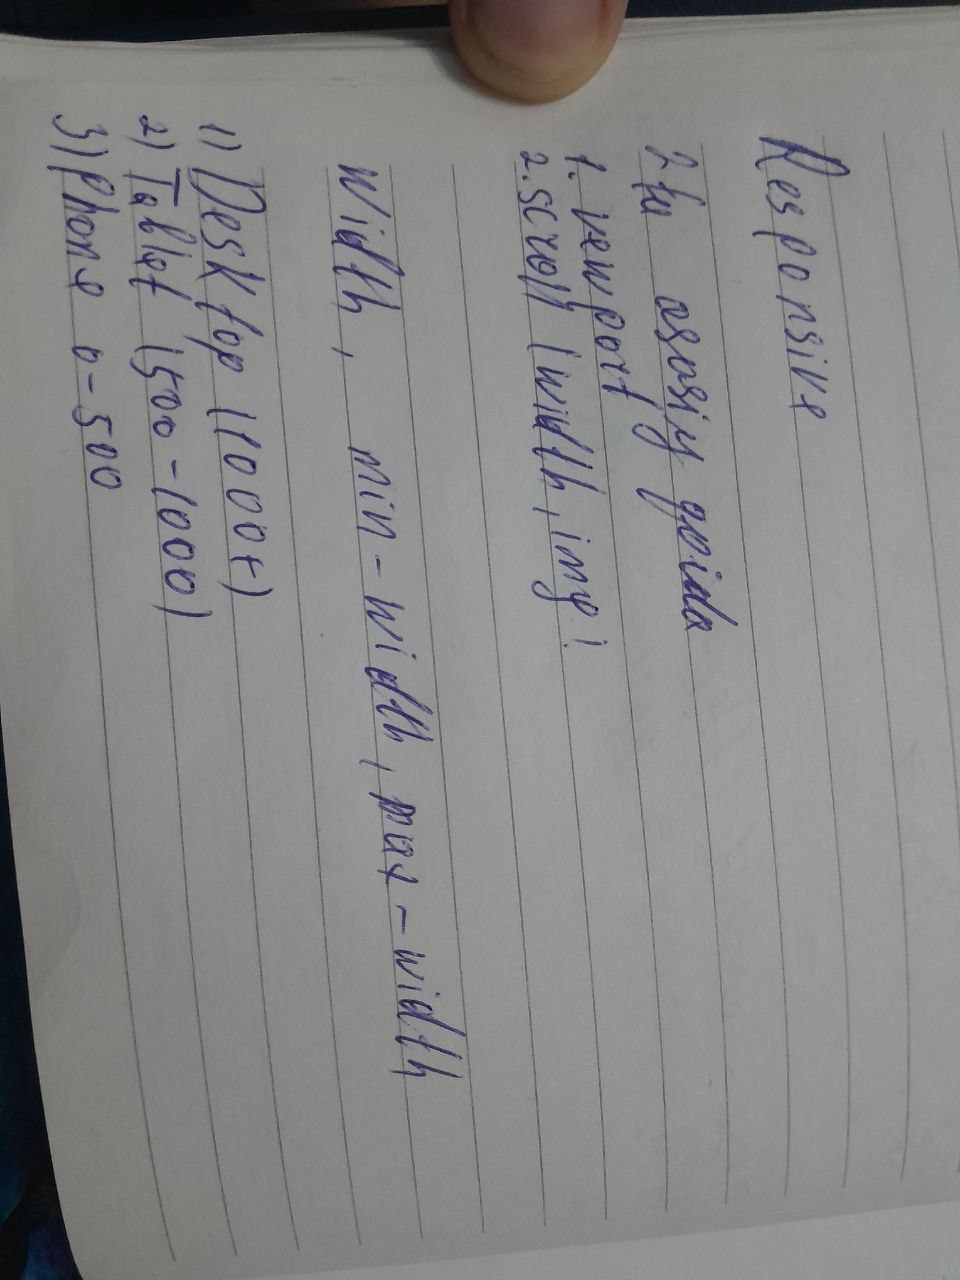 Responsive
2 ta asosiy qoida
1. vewport
2. scroll (width, img)
width, min-width, max-width
1) Desktop (1000+)
2) Tablet (500-1000)
3) Phone 0-500